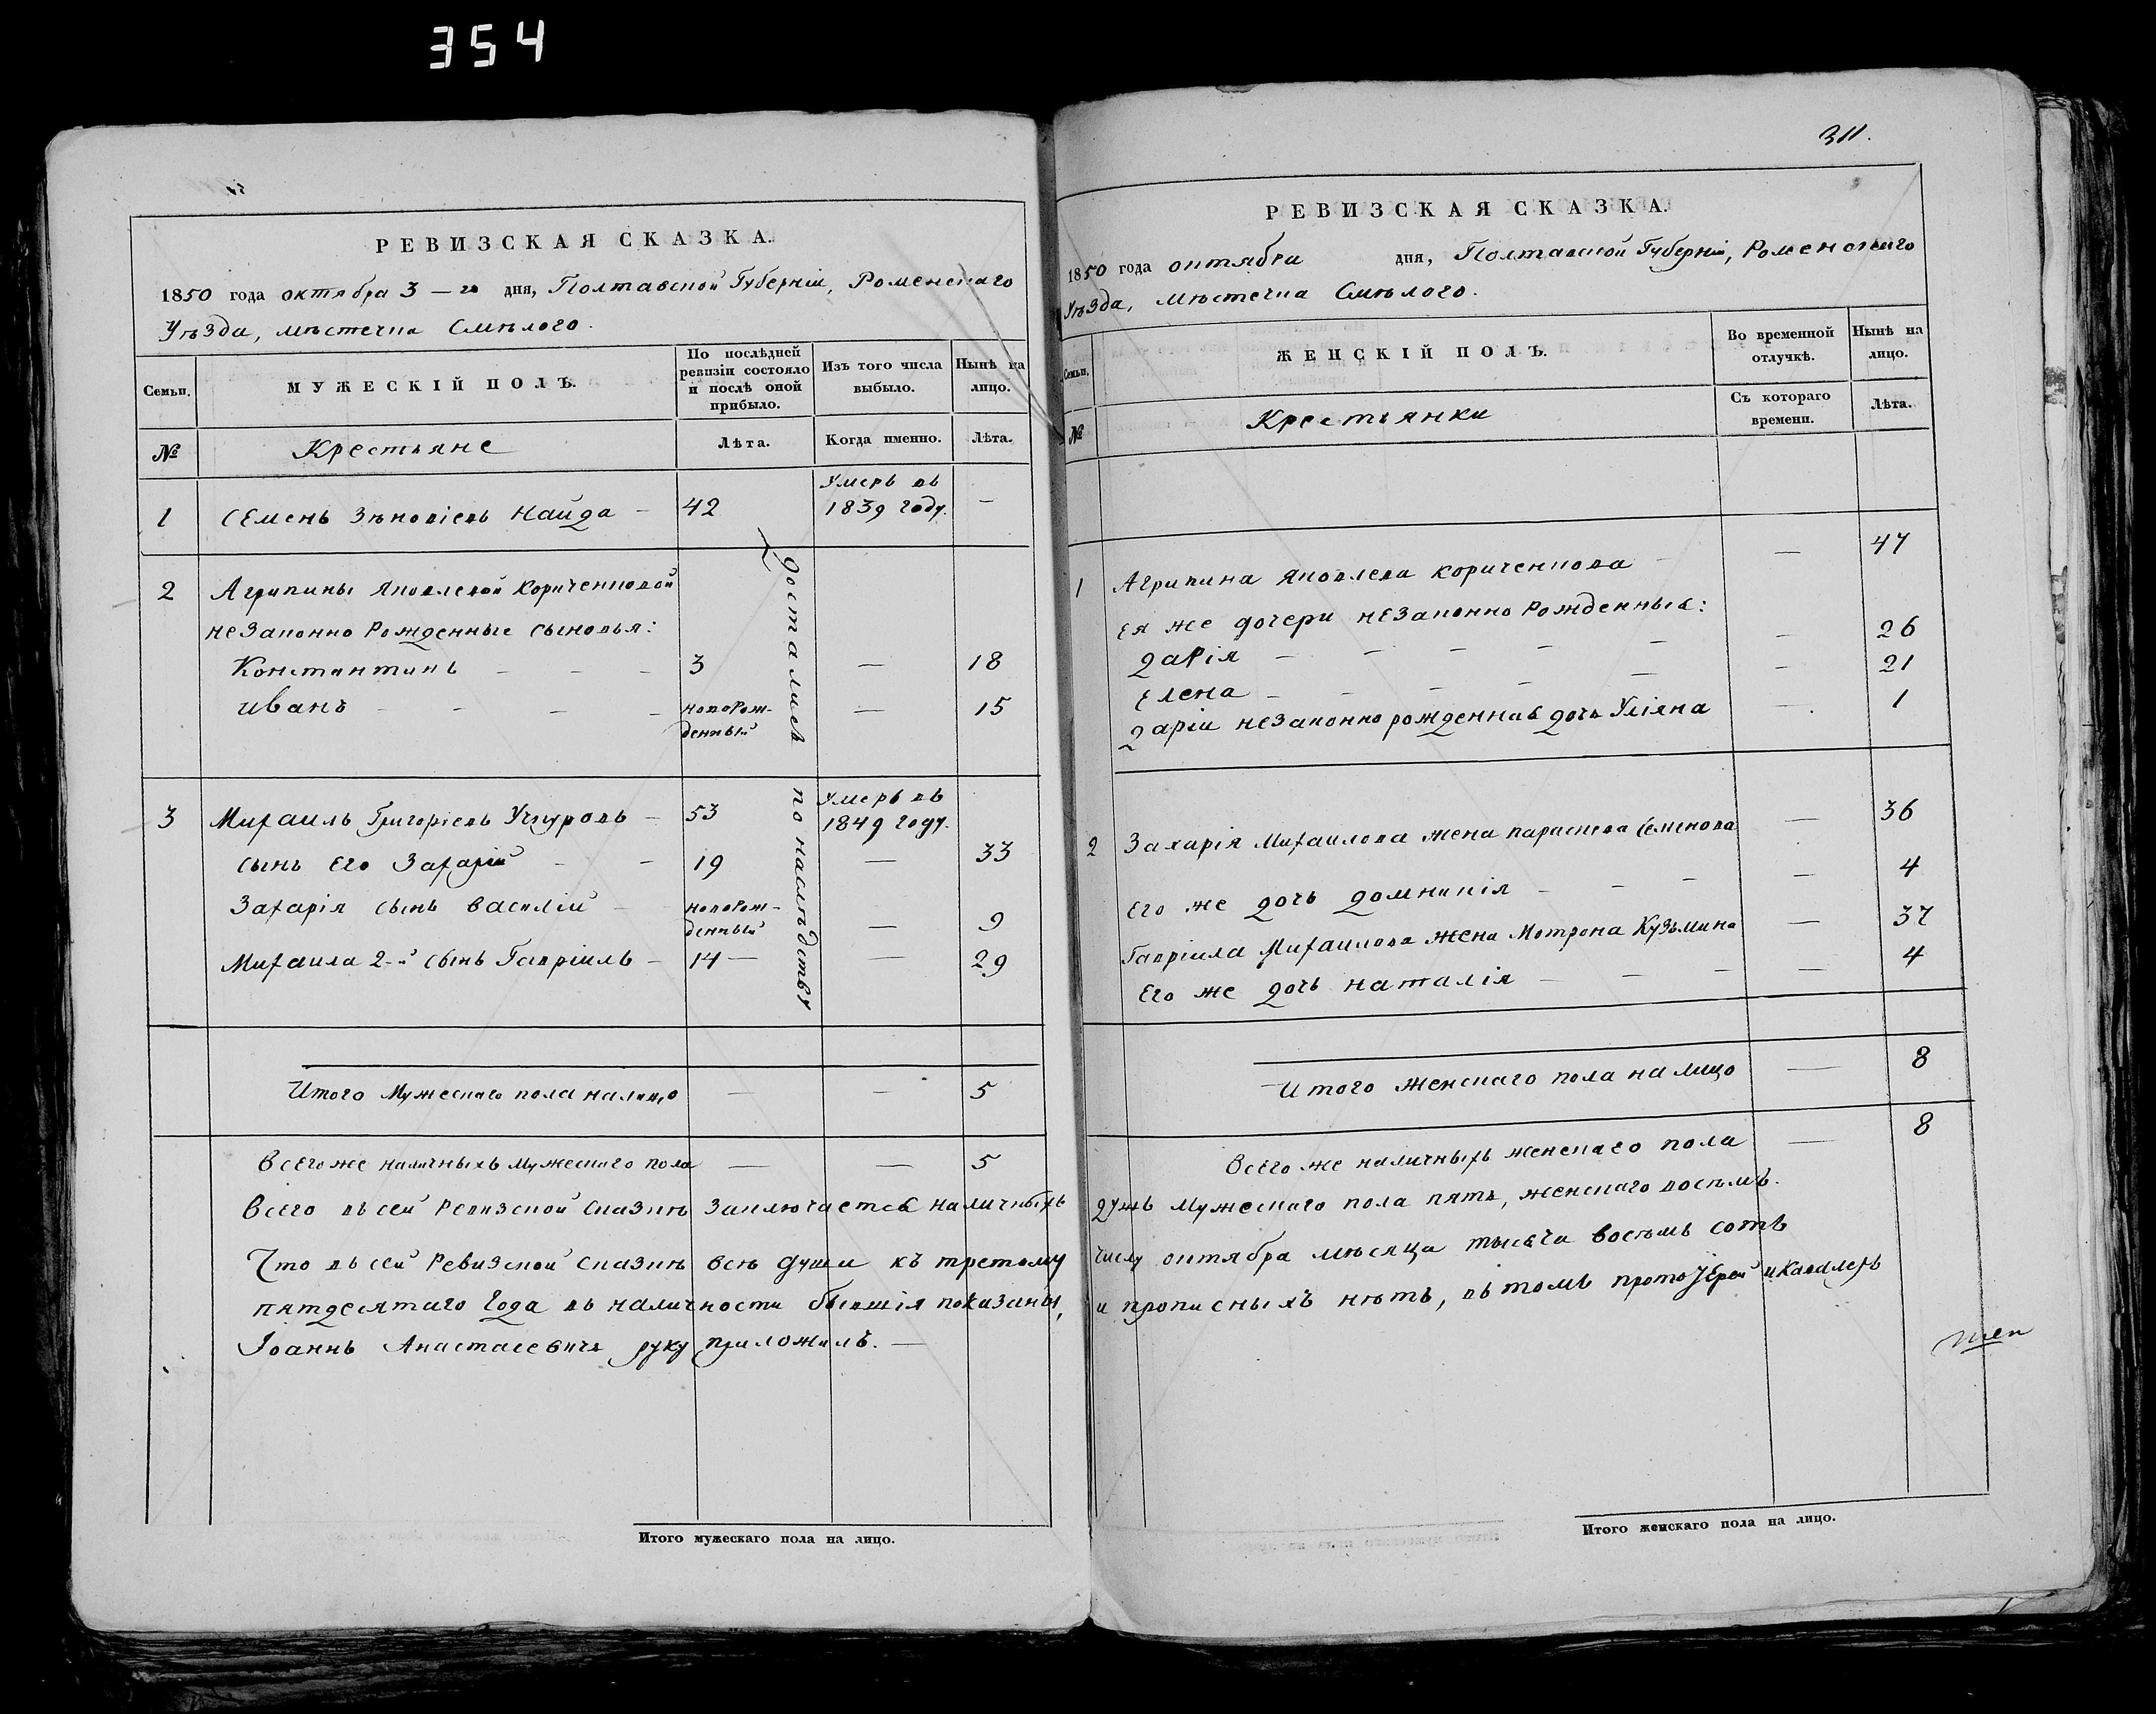 354
РЕВИЗСКАЯ СКАЗКА.
1850 года октября 3-го дня, Полтавской Губерніи, Роменскаго
Уѣзда, мѣстечка Смѣлого.
Семьи.
МУЖЕСКІЙ ПОЛЪ.
По послѣдней ревизіи состояло и послѣ оной прибыло.
Изъ того числа выбыло.
Нынѣ на лицо.
№
Крестьяне
Лѣта.
Когда именно.
Лѣта.
Умеръ въ
1 Семенъ Зѣновіевъ Найда — 42 1839 году. —
2 Агрипины Яковлевой Кориченковой
незаконно рожденные сыновья:
Константинъ — — — 3 — 18
Иванъ — — — — новорож- — 15
денный
достались
по наслѣдству
Умеръ въ
3 Михаилъ Григоріевъ Учкуровъ — 53 1849 году.
сынъ его Захарій — — 19 — 33
Захарія сынъ Василій — новорож-
денный — 9
Михаила 2-й сынъ Гавріилъ — 14 — — 29
Итого Мужескаго пола налицо — — 5
Всего же наличныхъ мужескаго пола — — 5
311.
РЕВИЗСКАЯ СКАЗКА.
1850 года октября дня, Полтавской Губерніи, Роменскаго
Уѣзда, мѣстечка Смѣлого.
Семьи.
ЖЕНСКІЙ ПОЛЪ.
Во временной отлучкѣ.
Нынѣ на лицо.
№
Крестьянки
Съ котораго времени.
Лѣта.
1 Агрипина Яковлева Кориченкова — — 47
ея же дочери незаконно рожденные:
Дарія — — — — — 26
Елена — — — — — 21
Даріи незаконно рожденная дочь Уліяна — 1
2 Захарія Михаилова жена Параскева Семенова — 36
Его же дочь Домникія — — — — 4
Гавріила Михаилова жена Мотрона Кузьмина — 37
Его же дочь Наталія — — — — 4
Итого женскаго пола на лицо — 8
Всего же наличныхъ женскаго пола — 8
Всего въ сей Ревизской Сказкѣ заключается наличныхъ душъ мужескаго пола пять, женскаго восѣмъ.
Что въ сей Ревизской Сказкѣ всѣ души къ третому числу октября мѣсяца тысяча восѣмъ сотъ
пятдесятаго года въ наличности бывшія показаны, и прописныхъ нѣтъ, въ томъ протоіерей и Кавалеръ
Іоаннъ Анастасевичъ руку приложилъ. —
Итого мужескаго пола на лицо.
Итого женскаго пола на лицо.